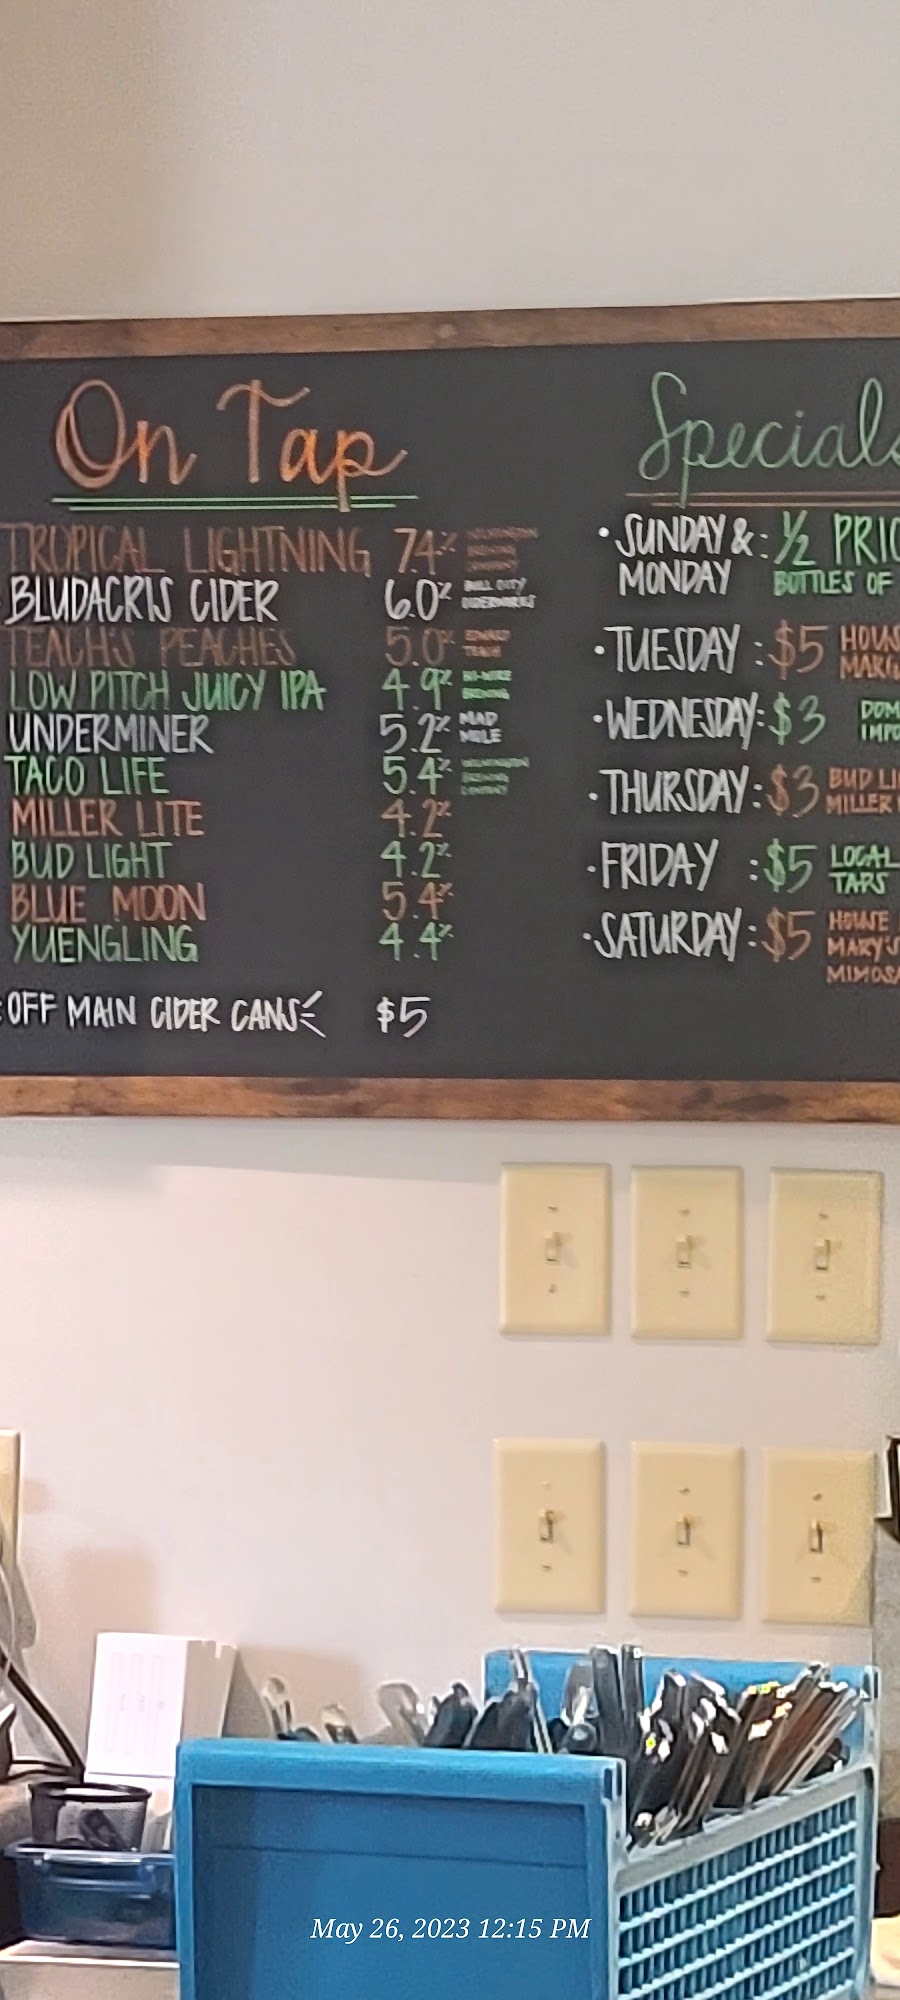 On Tap
TROPICAL LIGHTNING 7.4%
BLUDACRIS CIDER 6.0% BULL CITY CIDERWORKS
TEACH'S PEACHES 5.0% EDWARD TEACH
LOW PITCH JUICY IPA 4.9% HI-WIRE BREWING
UNDERMINER 5.2% MAD MOLE
TACO LIFE 5.4% WILMINGTON BREWING COMPANY
MILLER LITE 4.2%
BUD LIGHT 4.2%
BLUE MOON 5.4%
YUENGLING 4.4%
OFF MAIN CIDER CANS $5
Specials
• SUNDAY & : ½ PRIC
MONDAY BOTTLES OF
• TUESDAY : $5 HOUS
MARG
• WEDNESDAY: $3 DOM
IMPO
• THURSDAY : $3 BUD LI
MILLER
• FRIDAY : $5 LOCAL
TAPS
• SATURDAY : $5 HOUSE
MARY'S
MIMOSA
May 26, 2023 12:15 PM